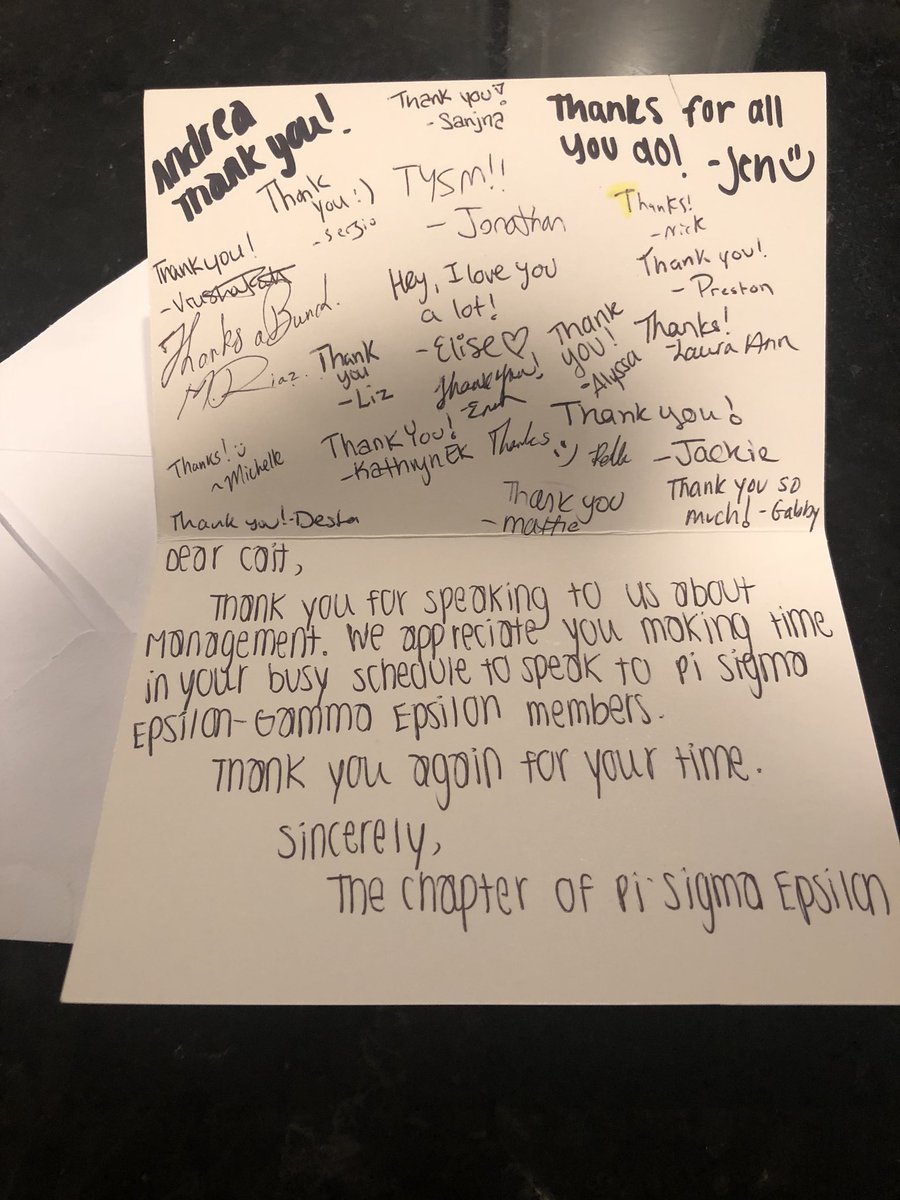 Andrea
Thank you!
Thank you!
- Sanjna
Thanks for all
you do!
- Jen
Thank
you :)
- Sergio
TYSM!!
- Jonathan
Thanks!
- Nick
Thank you!
Thank you!
- Preston
Hey, I love you
a lot!
- Elise ♡
Thanks a Bunch.
M. Riaz
Thank
you
- Liz
Thank
you!
- Alyssa
Thanks!
- Laura Ann
Thank you!
Thanks! :)
~ Michelle
Thank You!
- Kathryn EK
Thanks
:)
Thank you!
- Jackie
Thank you! - Desta
Thank you
- Mattie
Thank you so
much! - Gabby
Dear Cait,
Thank you for speaking to us about
management. We appreciate you making time
in your busy schedule to speak to Pi Sigma
Epsilon-Gamma Epsilon members.
Thank you again for your time.
Sincerely,
The Chapter of Pi Sigma Epsilon